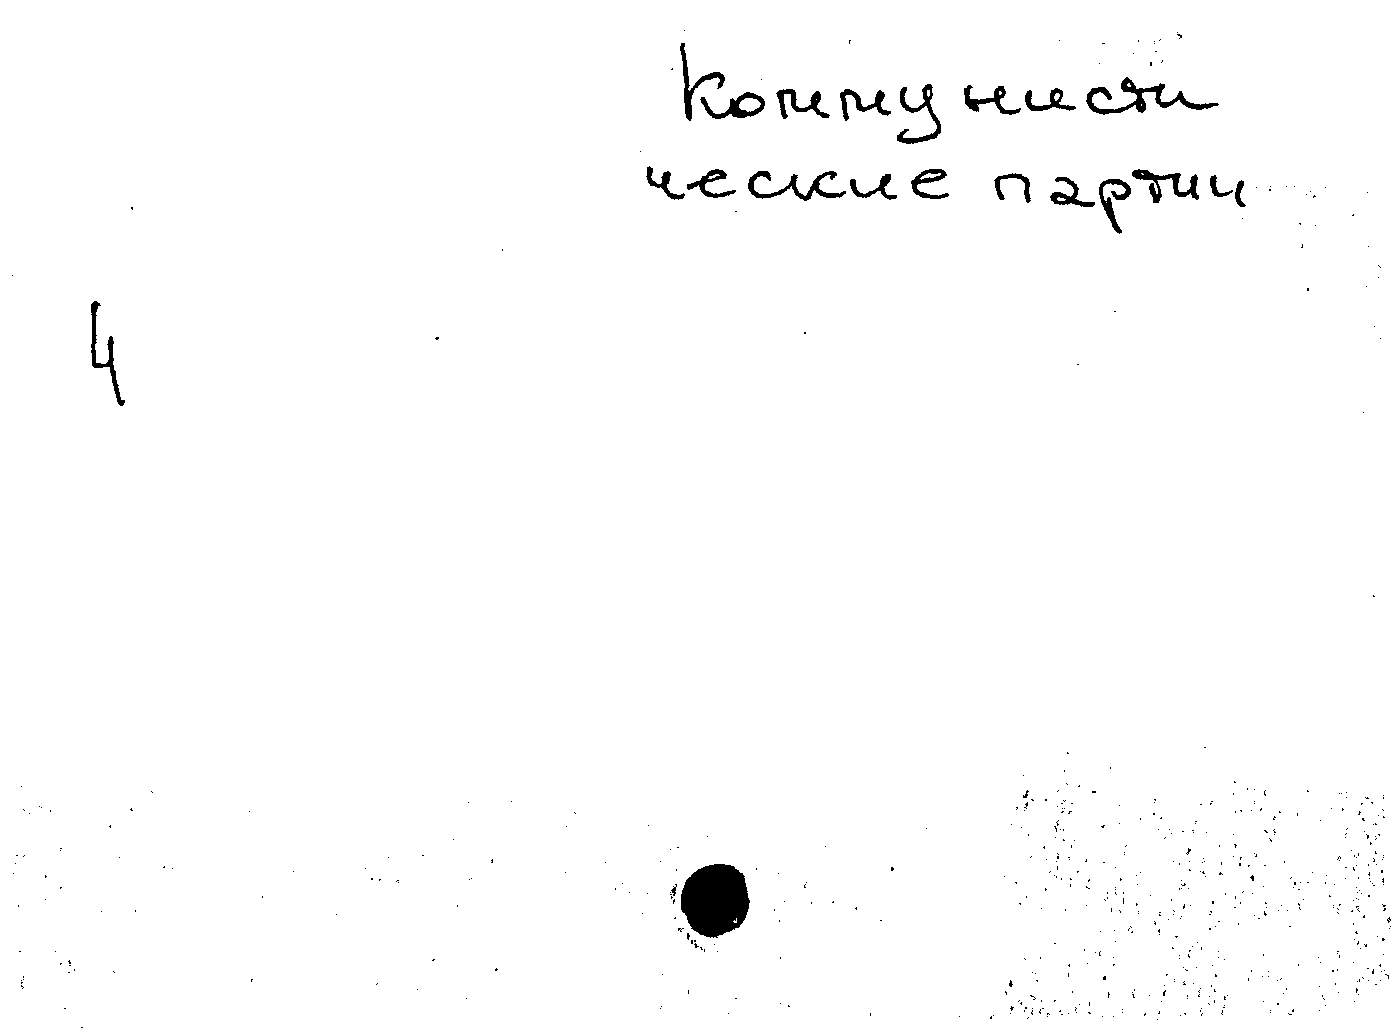 Коммунисти
ческие партии
4